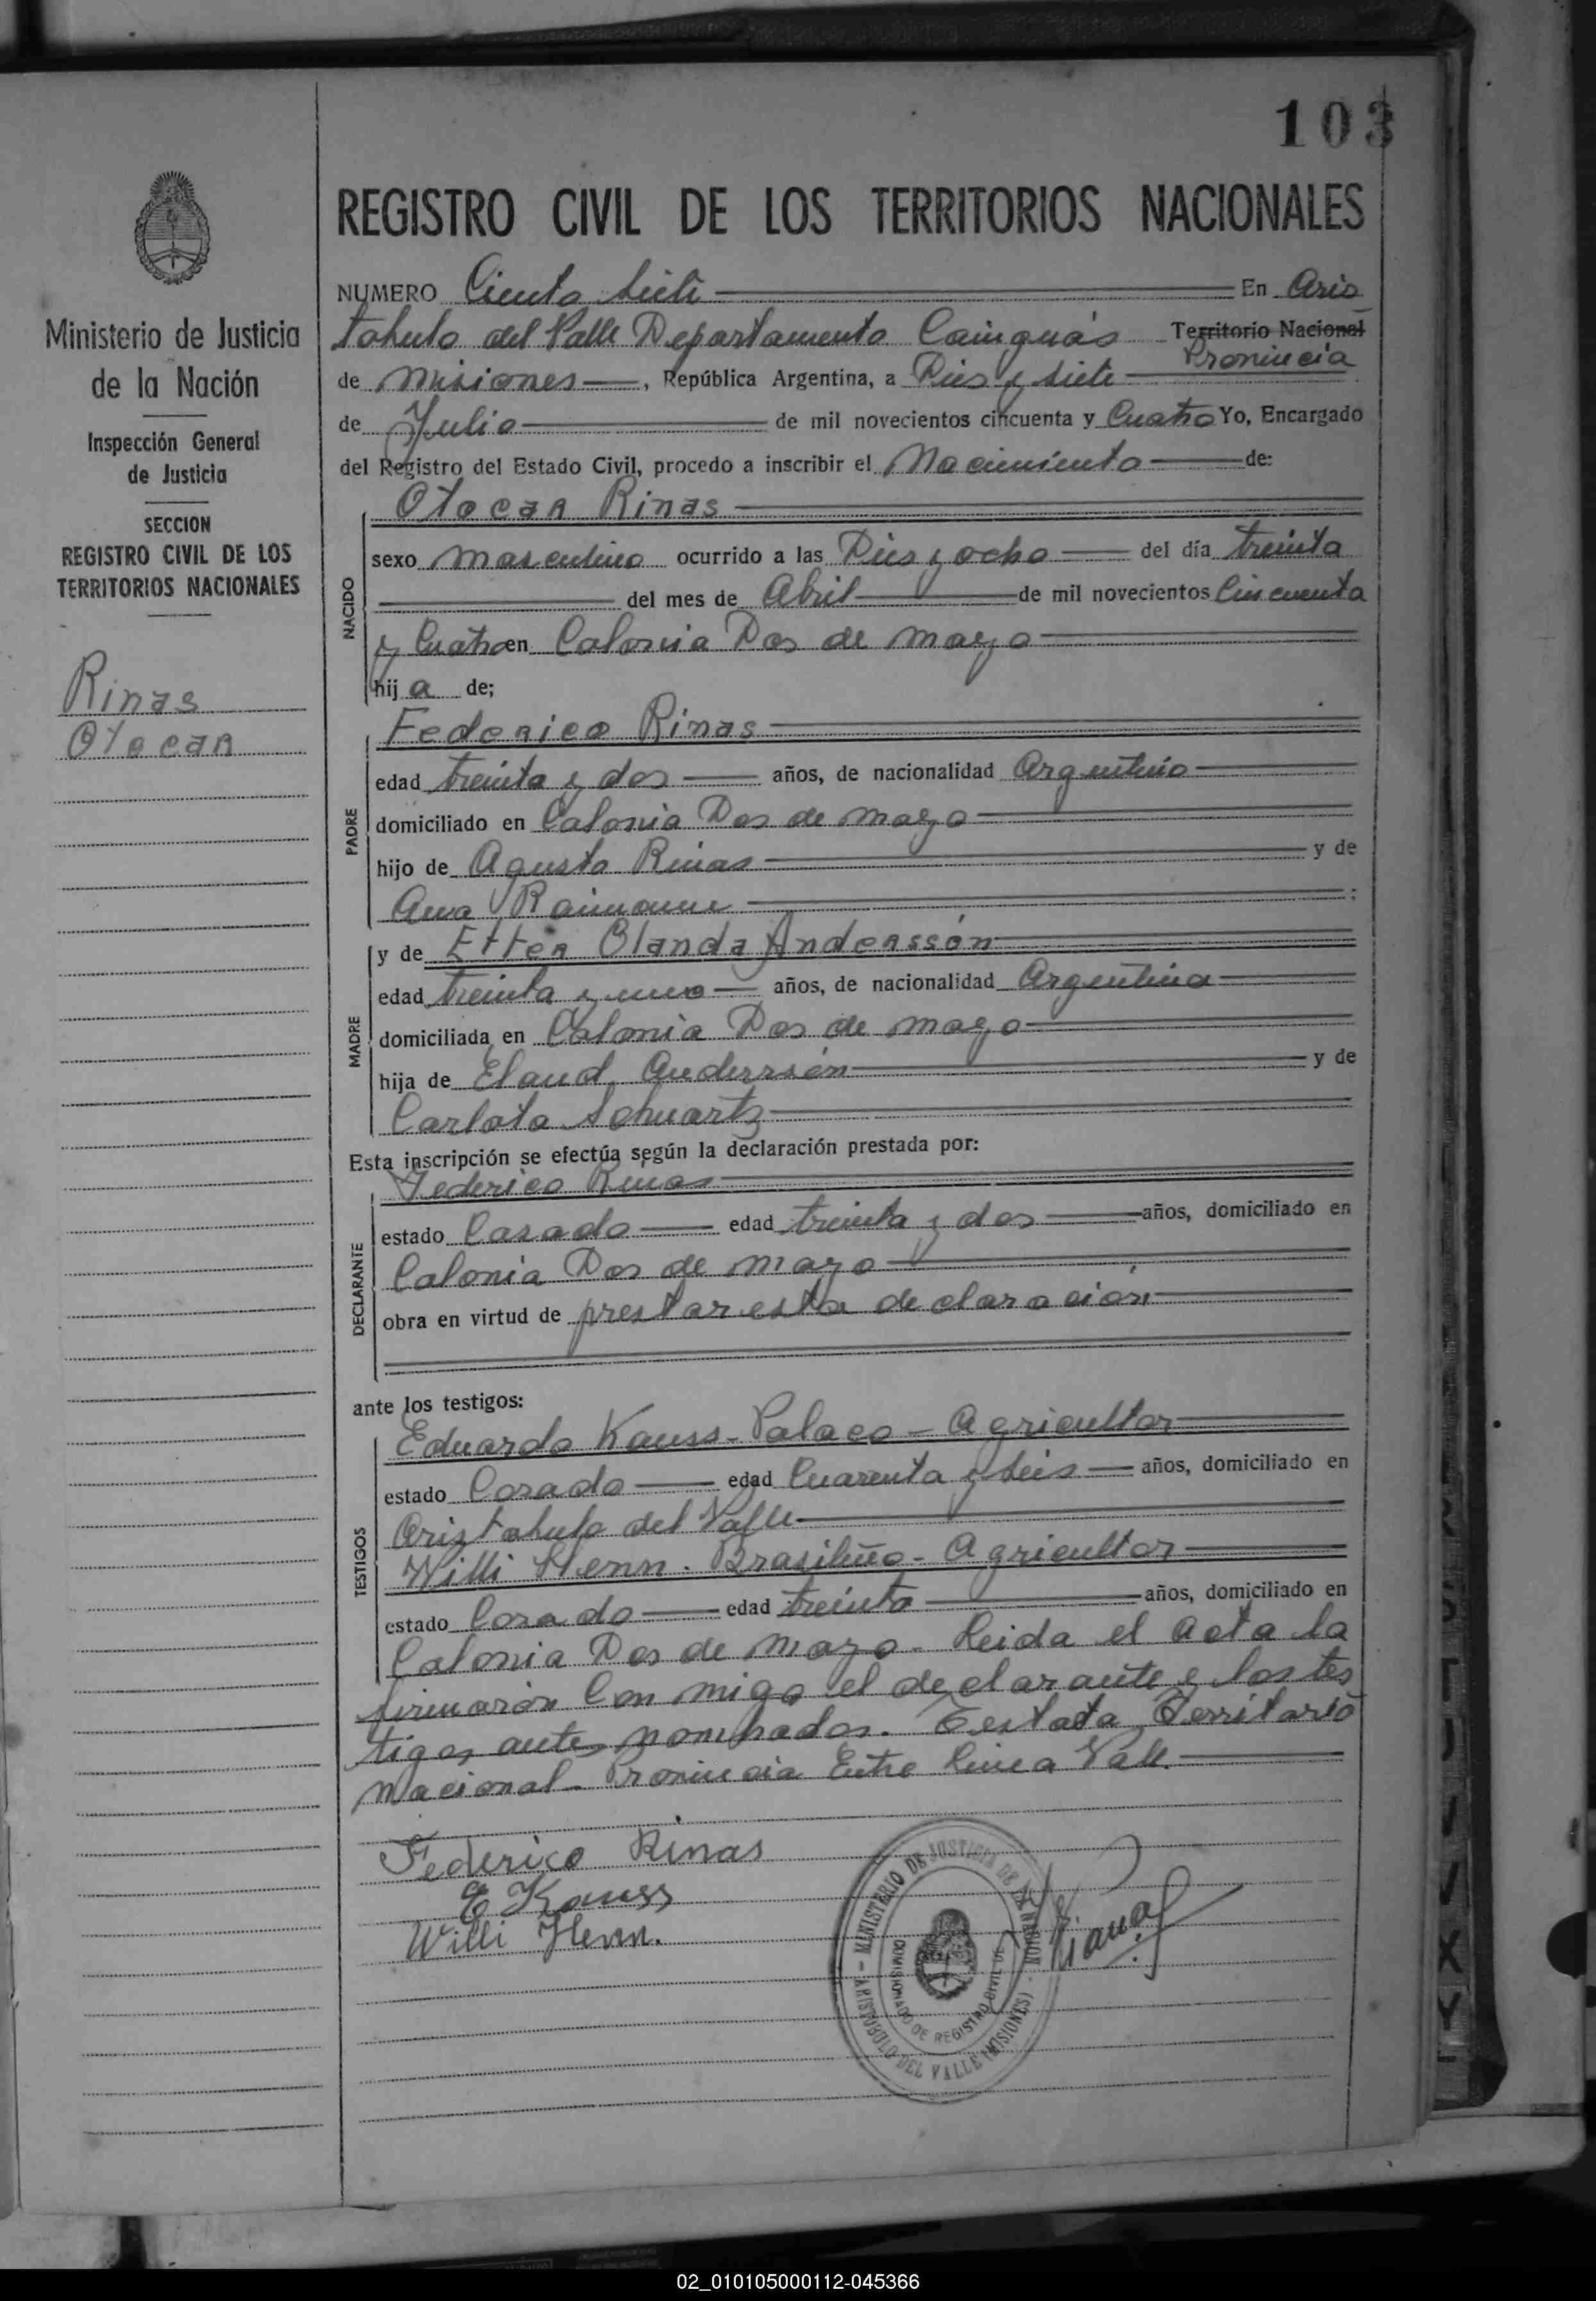 103
REGISTRO CIVIL DE LOS TERRITORIOS NACIONALES
Ministerio de Justicia
de la Nación
Inspección General
de Justicia
SECCION
REGISTRO CIVIL DE LOS
TERRITORIOS NACIONALES
Rinas
Otocar
NUMERO Ciento Siete En Aris
tobulo del Valle Departamento Cainguás Territorio Nacional
Provincia
de Misiones, República Argentina, a Dies y siete
de Julio de mil novecientos cincuenta y Cuatro Yo, Encargado
del Registro del Estado Civil, procedo a inscribir el Nacimiento de:
Otocar Rinas
NACIDO
sexo masculino ocurrido a las Dies y ocho del día treinta
del mes de Abril de mil novecientos Cincuenta
y Cuatro en Colonia Dos de mayo
hija de;
Federico Rinas
PADRE
edad treinta y dos años, de nacionalidad Argentino
domiciliado en Colonia Dos de mayo
hijo de Agusto Rinas y de
Ana
y de Etter Olanda Anderssón
MADRE
edad treinta y uno años, de nacionalidad Argentina
domiciliada en Colonia Dos de mayo
hija de Eland Anderssón y de
Carlota Schuartz
Esta inscripción se efectúa según la declaración prestada por:
Federico Rinas
DECLARANTE
estado Casado edad treinta y dos años, domiciliado en
Colonia Dos de mayo
obra en virtud de prestar esta declaración
ante los testigos:
Eduardo Kauss - Polaco - Agricultor
TESTIGOS
estado Casado edad Cuarenta y Seis años, domiciliado en
Aristobulo del Valle
Willi Henn. Brasileño - Agricultor
estado Casado edad treinta años, domiciliado en
Colonia Dos de mayo - Leida el acta la
firmarón Con migo el declarante y los tes
tigos antes nombrados. Testata Territorio
Nacional - Provincia Entre linea Vale.
Federico Rinas
E Kauss
Willi Henn.
MINISTERIO DE JUSTICIA DE LA NACION - ARISTOBULO DEL VALLE (MISIONES) -
COMISIONADO DE REGISTRO CIVIL DE
02_010105000112-045366